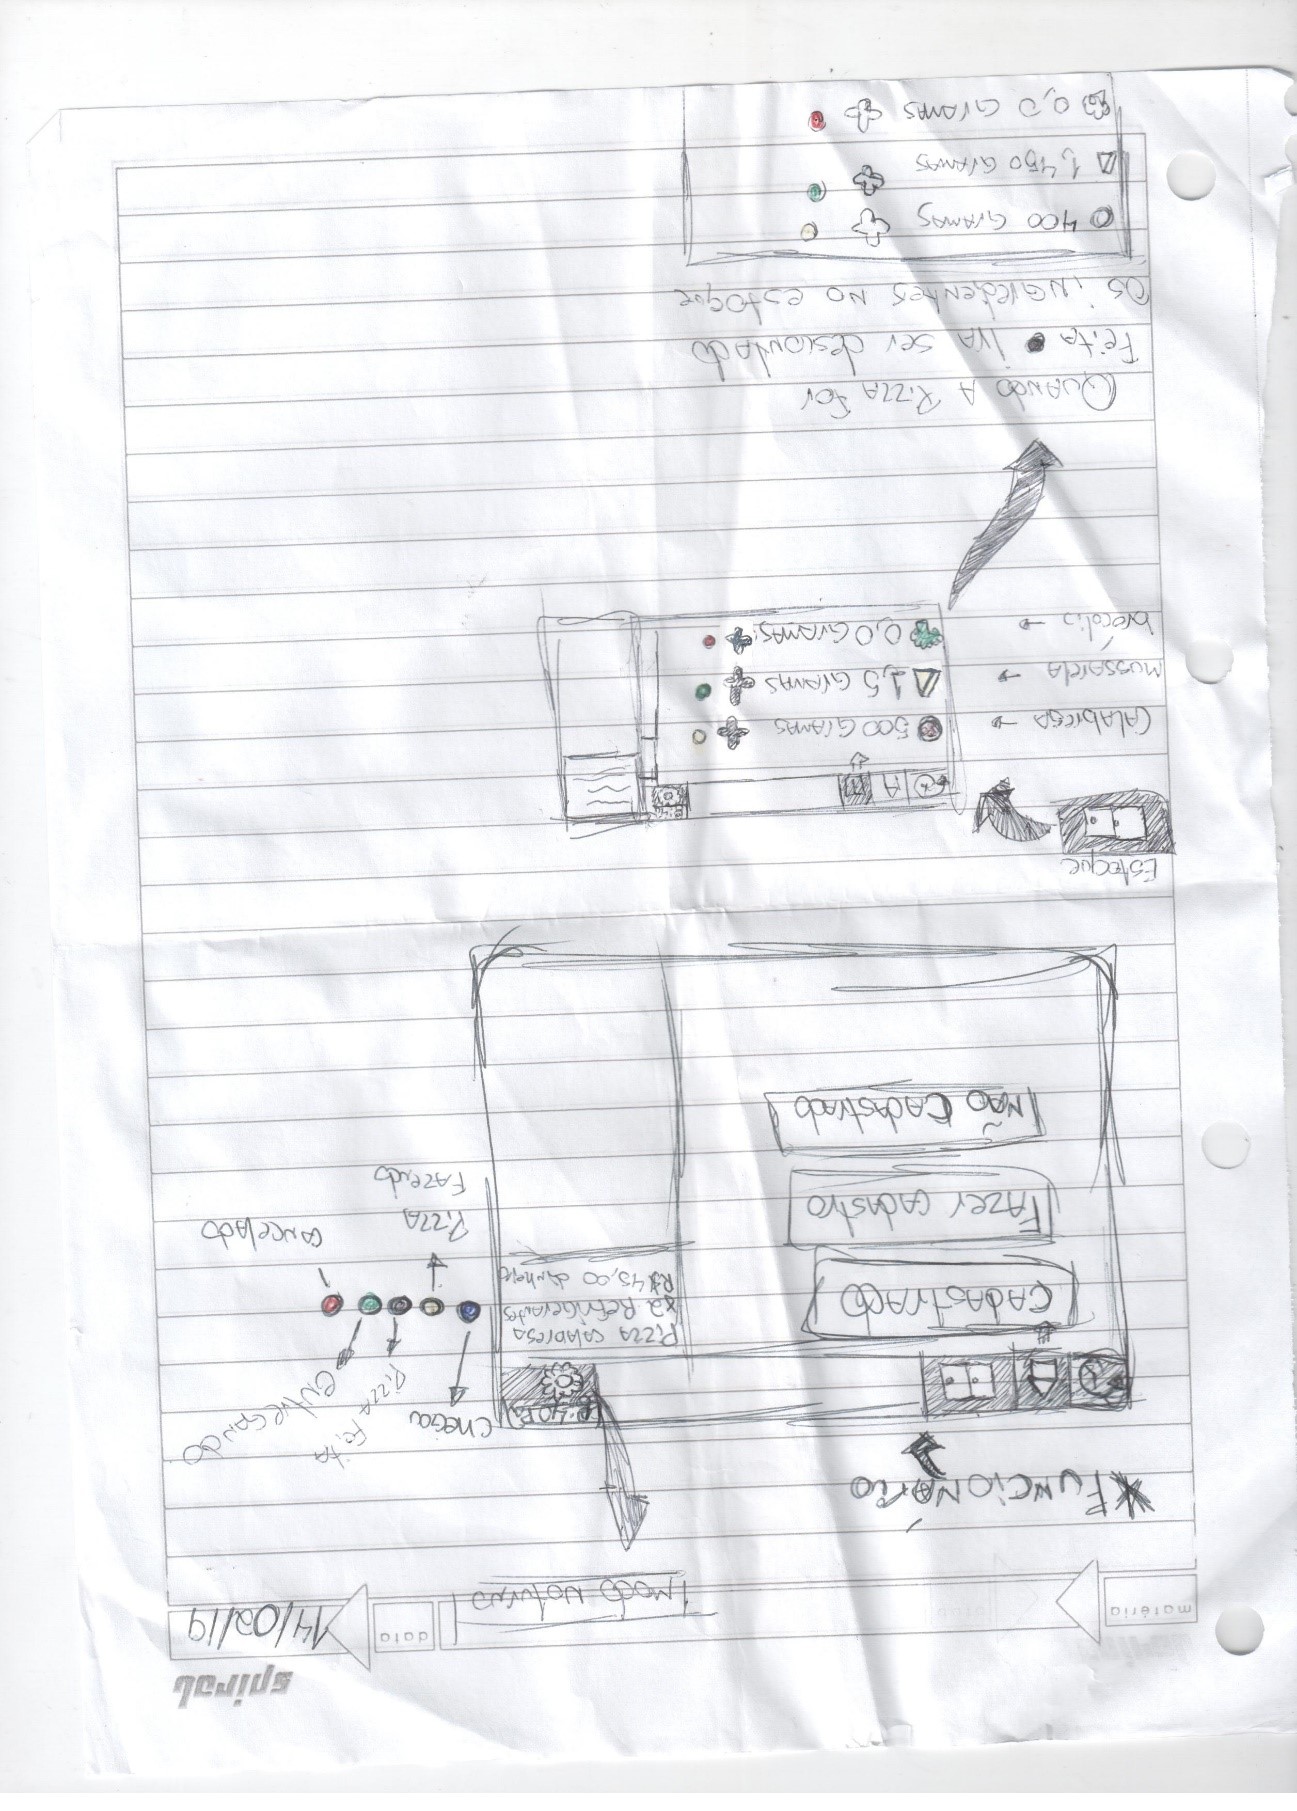 spiral
matéria
data
14/02/19
Modo Noturno
*Funcionário
Chegou
Pizza Feita
entregando
Cadastrado
Fazer cadastro
Não Cadastrado
Pizza calabresa
x2 Refrigerantes
R$45,00 dinheiro
Pizza
Fazendo
cancelado
Estoque
Calabresa → 500 Gramas
Mussarela → 1,5 Gramas
brócolis → 0,0 Gramas
Quando a Pizza for
Feita ● ira ser descontado
Os ingredientes no estoque
400 Gramas
1,450 gramas
0,0 Gramas